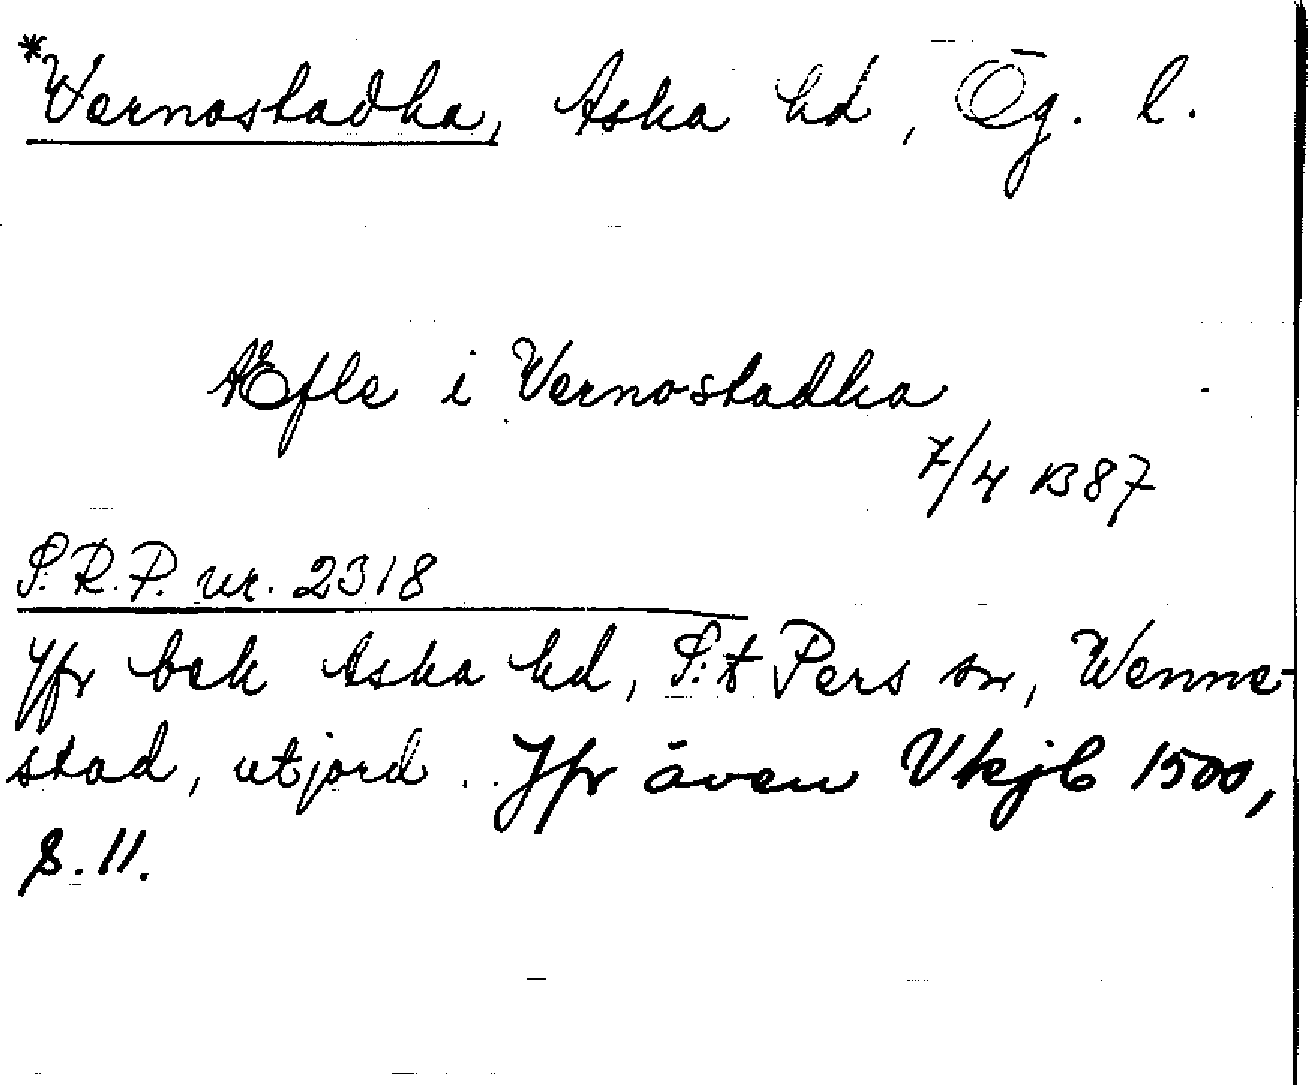 *Vernostadha, Aska hd, Ög. l.
Æfle i Vernostadha
7/4 1387
S.R.P. nr. 2318
Jfr bek Aska hd, S:t Pers sn, Wenne-
stad, utjord. Jfr även Vkjb 1500,
s. 11.